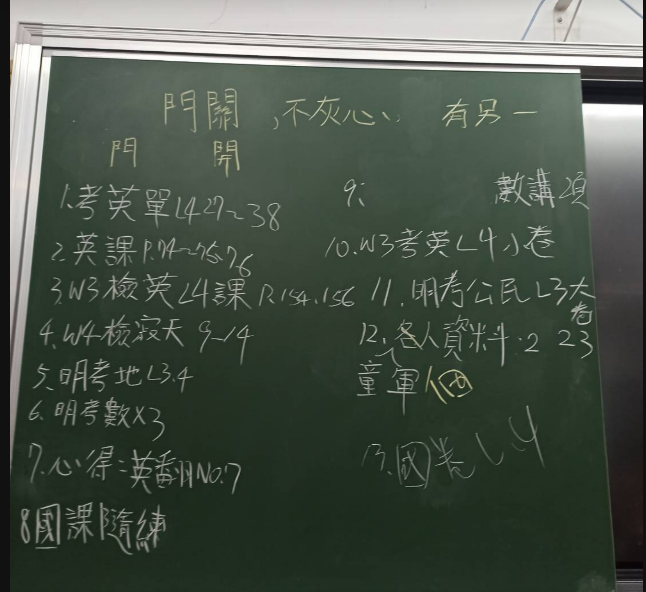 門關,不灰心、 有另一
門 開
1.考英單L4 27~38
2.英課P.74~75.76
3.W3檢英L4課P.154、156
4.W4檢寂天9-14
5.明考地L3.4
6.明考數×3
7.心得:英翻NO.7
8國課隨練
9: 數講2項
10.W3考英L4小卷
11.明考公民L3大卷
12.各人資料.2 23
童軍 個
13.國卷L4